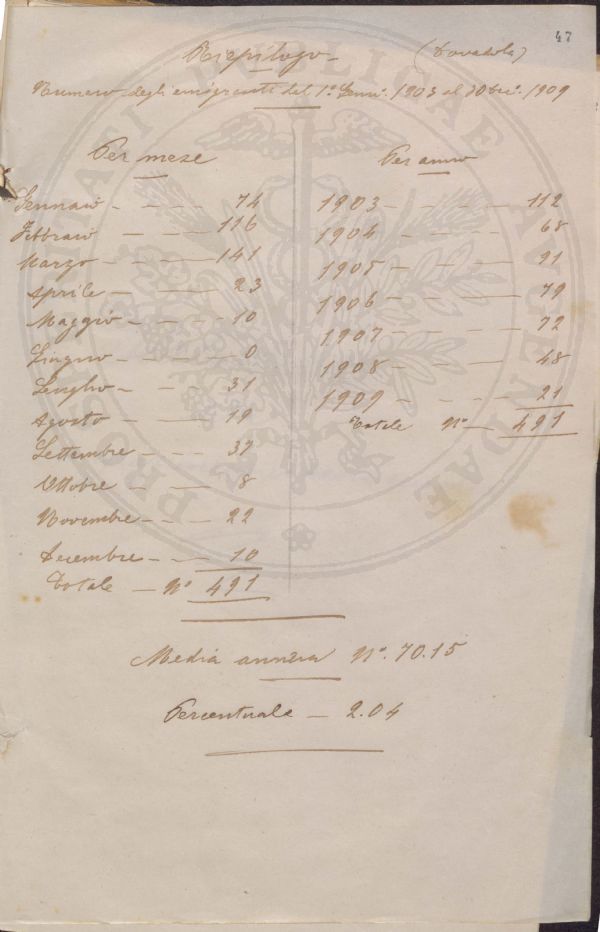 47
Riepilogo - (Dovadola)
Numero degli emigranti dal 1º Genn. 1903 al 30 Dec. 1909
Per mese
Gennaio - - - - 74
Febbraio - - - 116
Marzo - - - - 141
Aprile - - - - 23
Maggio - - - - 10
Giugno - - - - 0
Luglio - - - - 31
Agosto - - - 19
Settembre - - - 37
Ottobre - - 8
Novembre - - - 22
Decembre - - - 10
Totale - Nº 491
Per anno
1903 - - - - - 112
1904 - - - - - 68
1905 - - - - - 91
1906 - - - - - 79
1907 - - - - - 72
1908 - - - - - 48
1909 - - - - - 21
Totale Nº - 491
Media annua Nº. 70.15
Percentuale - 2.04
PUBLICAE AUGENDAE